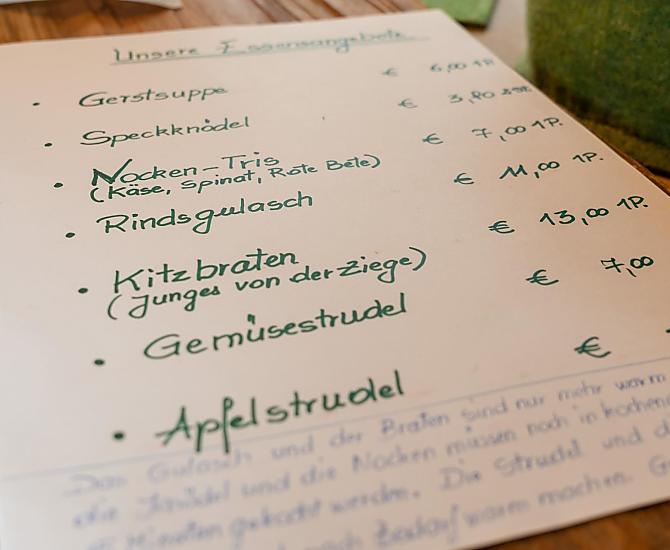 Unsere Essensangebote
• Gerstsuppe € 6,00 1P.
• Speckknödel € 3,80
• Nocken-Tris € 7,00 1P.
(Käse, Spinat, Rote Bete)
• Rindsgulasch € 11,00 1P.
• Kitzbraten € 13,00 1P.
(Junges von der Ziege)
• Gemüsestrudel € 7,00
• Apfelstrudel €
Das Gulasch und der Braten sind nur mehr warm
die Knödel und die Nocken müssen noch in kochend
Minuten gekocht werden. Die Strudel und d
nach Bedarf warm machen. G